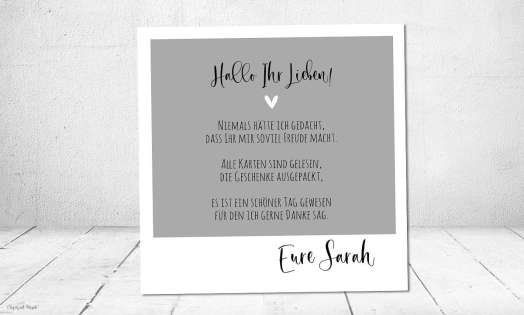 Hallo Ihr Lieben!
Niemals hätte ich gedacht,
dass Ihr mir soviel Freude macht.
Alle Karten sind gelesen,
die Geschenke ausgepackt,
es ist ein schöner Tag gewesen
für den ich gerne Danke sag.
Eure Sarah